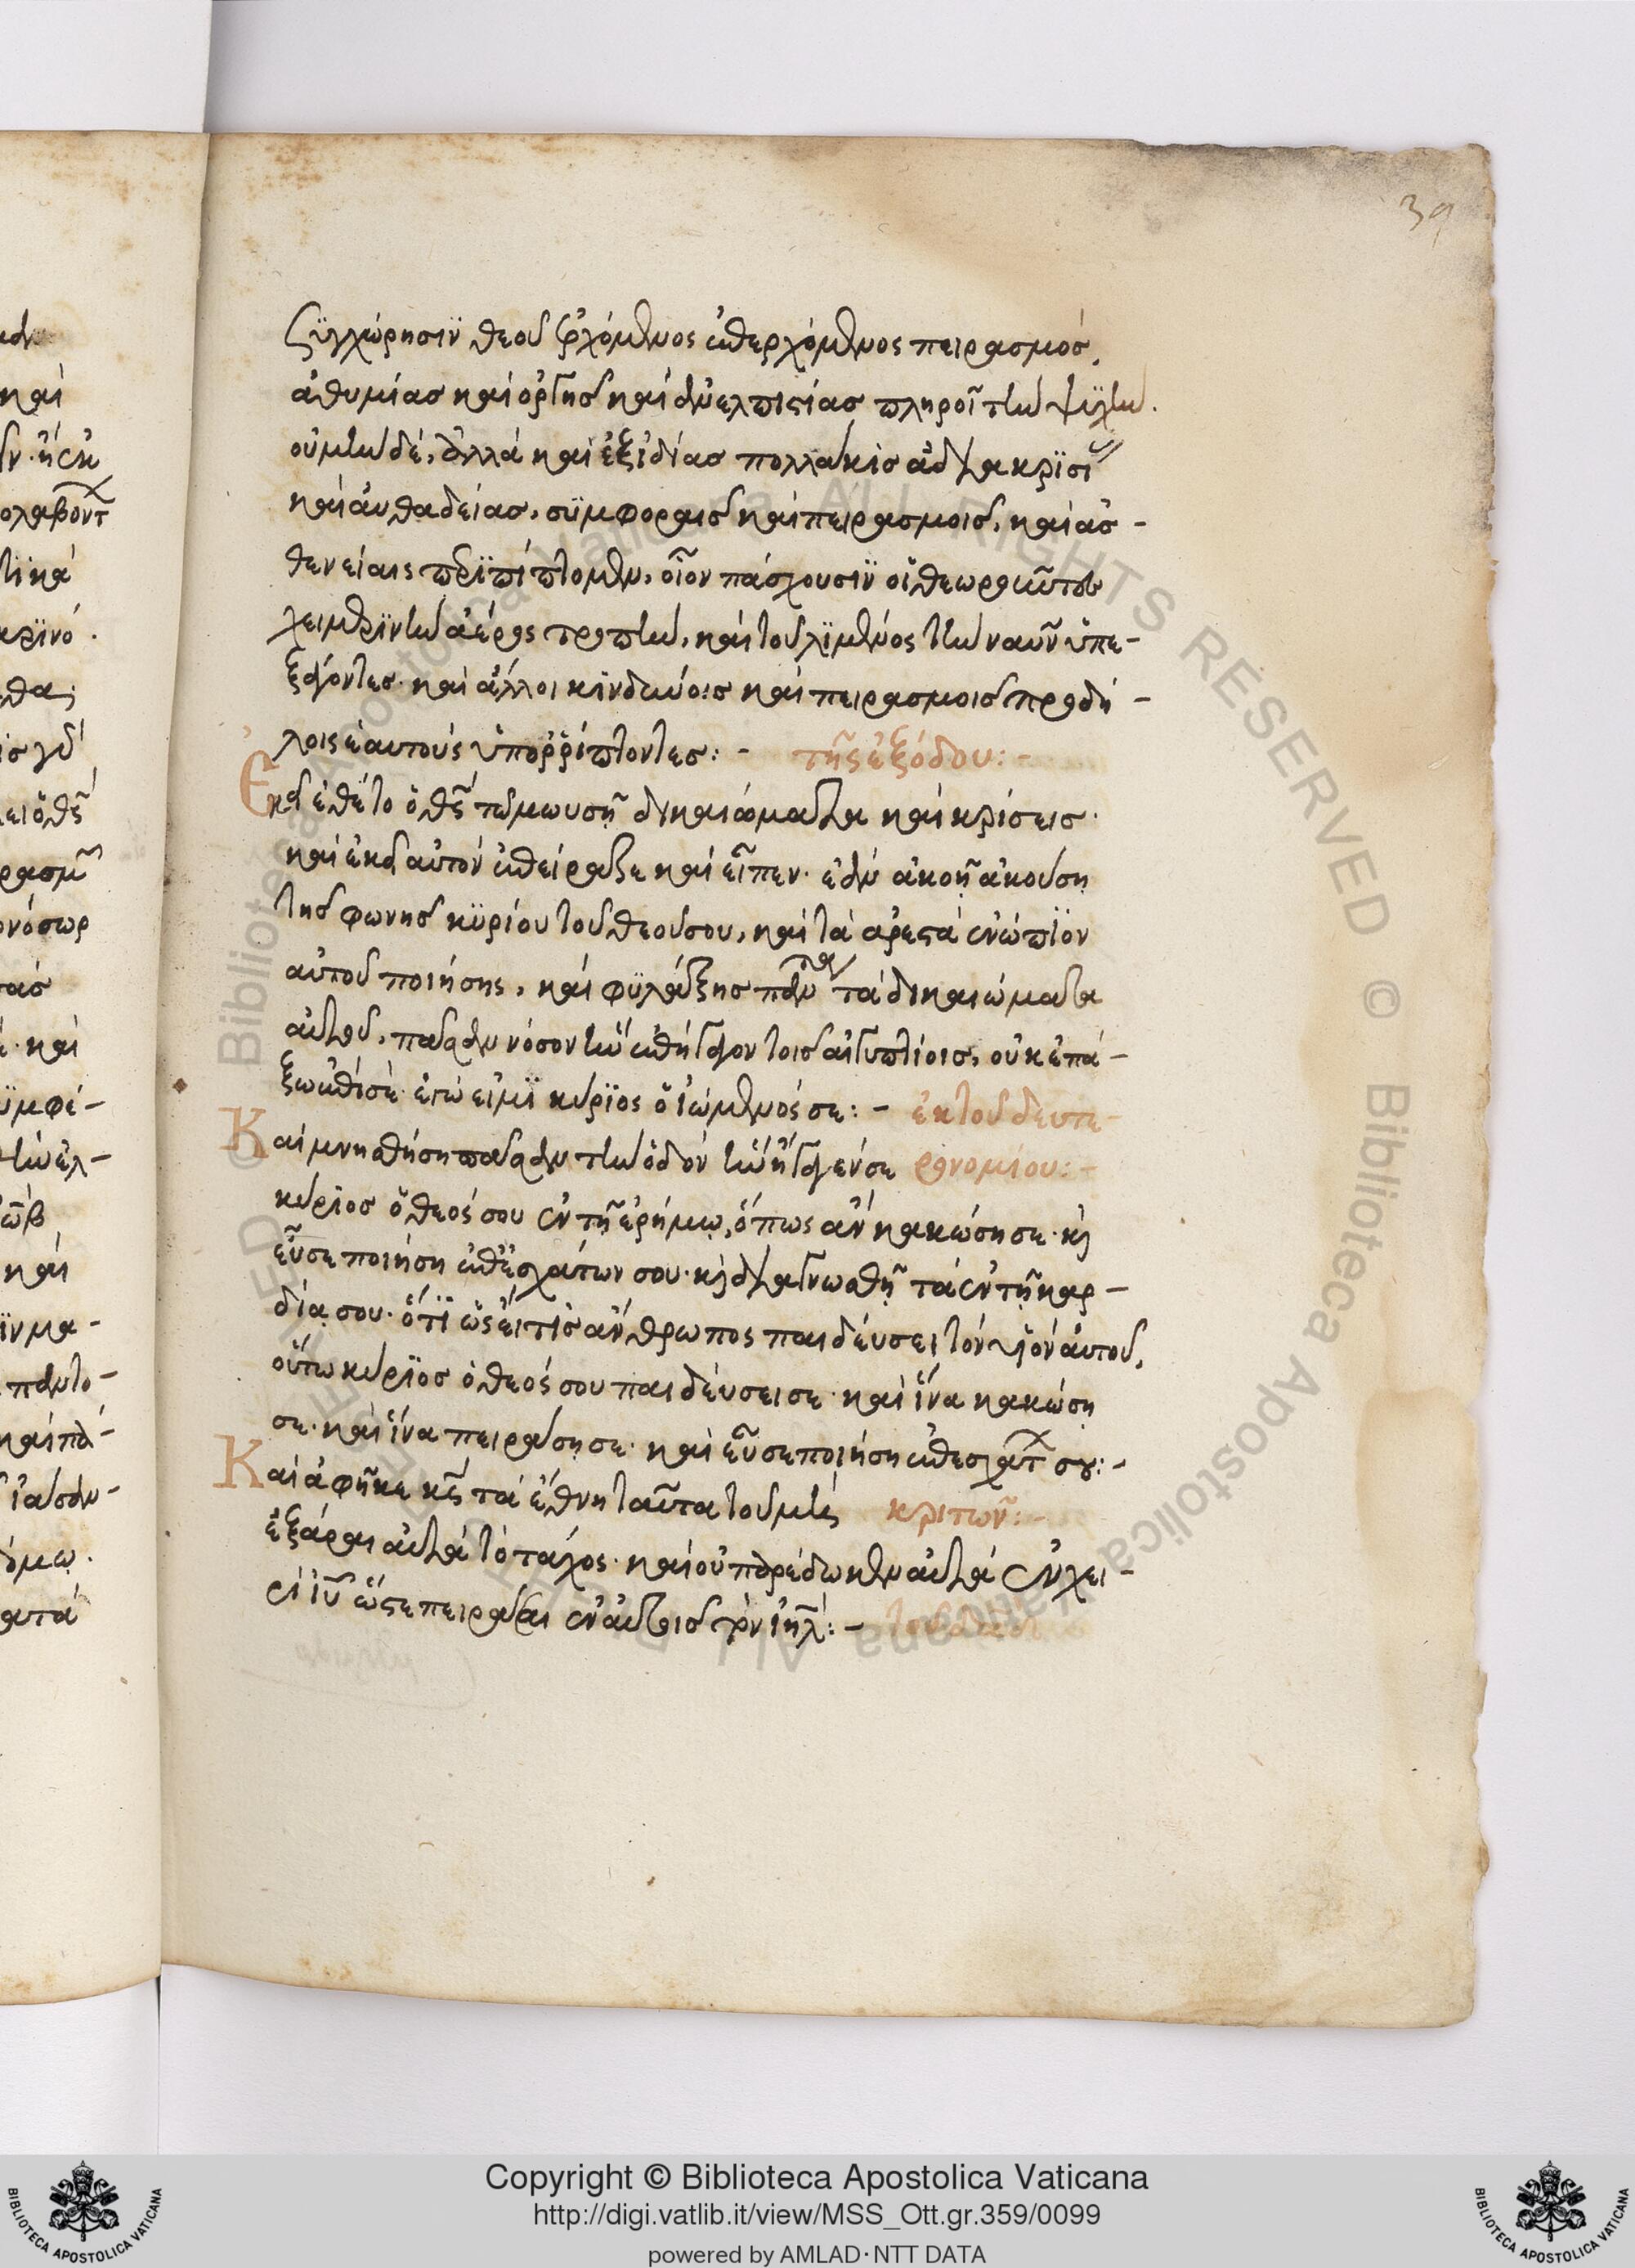 39
ξυγχώρησιν θεοῦ ἐρχόμενος ἐπερχόμενος πειρασμός,
ἀθυμίας καὶ ὀργῆς καὶ ἀνελπιστίας πληροῖ τὴν ψυχήν.
οὐ μὴν δὲ, ἀλλὰ καὶ ἐξ ἰδίας πολλάκις ἀδιακρισί
καὶ αὐθαδείας, συμφοραῖς καὶ πειρασμοῖς, καὶ ἀσ-
θενείαις περιπίπτομεν, οἷον πάσχουσιν οἱ θεωροῦντες
χειμερινὴν ἀέρος τροπὴν, καὶ τοῦ λιμένος τὴν ναῦν ὑπε-
ξάγοντες· καὶ ἄλλοι κινδύνοις καὶ πειρασμοῖς προδή-
λοις ἑαυτοὺς ὑπορρίπτοντες:- τῆς ἐξόδου:-
Ἐκεῖ ἔθετο ὁ θς τῷ μωυσῇ δικαιώματα καὶ κρίσεις·
καὶ ἐκεῖ αὐτὸν ἐπείραζε καὶ εἶπεν· ἐὰν ἀκοῇ ἀκούσῃ
τῆς φωνῆς κυρίου τοῦ θεοῦ σου, καὶ τὰ ἀρεστὰ ἐνώπιον
αὐτοῦ ποιήσῃς, καὶ φυλάξῃς πάντα τὰ δικαιώματα
αὐτοῦ, πᾶσαν νόσον ἣν ἐπήγαγον τοῖς αἰγυπτίοις, οὐκ ἐπά-
ξω ἐπὶ σέ· ἐγώ εἰμι κύριος ὁ ἰώμενός σε:- ἐκ τοῦ δευτε-
Καὶ μνησθήσῃ πᾶσαν τὴν ὁδὸν ἣν ἤγαγέν σε ρονομίου:-
κύριος ὁ θεός σου ἐν τῇ ἐρήμῳ, ὅπως ἂν κακώσῃ σε· κ
εὖ σε ποιήσῃ ἐπ' ἐσχάτων σου· κ διαγνωσθῇ τὰ ἐν τῇ καρ-
δίᾳ σου· ὅτι ὡς εἴ τις ἄνθρωπος παιδεύσει τὸν υἱὸν αὐτοῦ,
οὕτω κύριος ὁ θεός σου παιδεύσει σε· καὶ ἵνα κακώσῃ
σε· καὶ ἵνα πειράσῃ σε· καὶ εὖ σε ποιήσῃ ἐπ' ἐσχάτ σου:-
Καὶ ἀφῆκε κς τὰ ἔθνη ταῦτα τοῦ μὴ κριτῶν:-
ἐξάραι αὐτὰ τὸ τάχος· καὶ οὐ παρέδωκεν αὐτὰ ἐν χει-
ρὶ ιυ ὥστε πειράσαι ἐν αὐτοῖς τὸν ιηλ:-
Copyright © Biblioteca Apostolica Vaticana
http://digi.vatlib.it/view/MSS_Ott.gr.359/0099
powered by AMLAD·NTT DATA
BIBLIOTECA APOSTOLICA VATICANA
BIBLIOTECA APOSTOLICA VATICANA